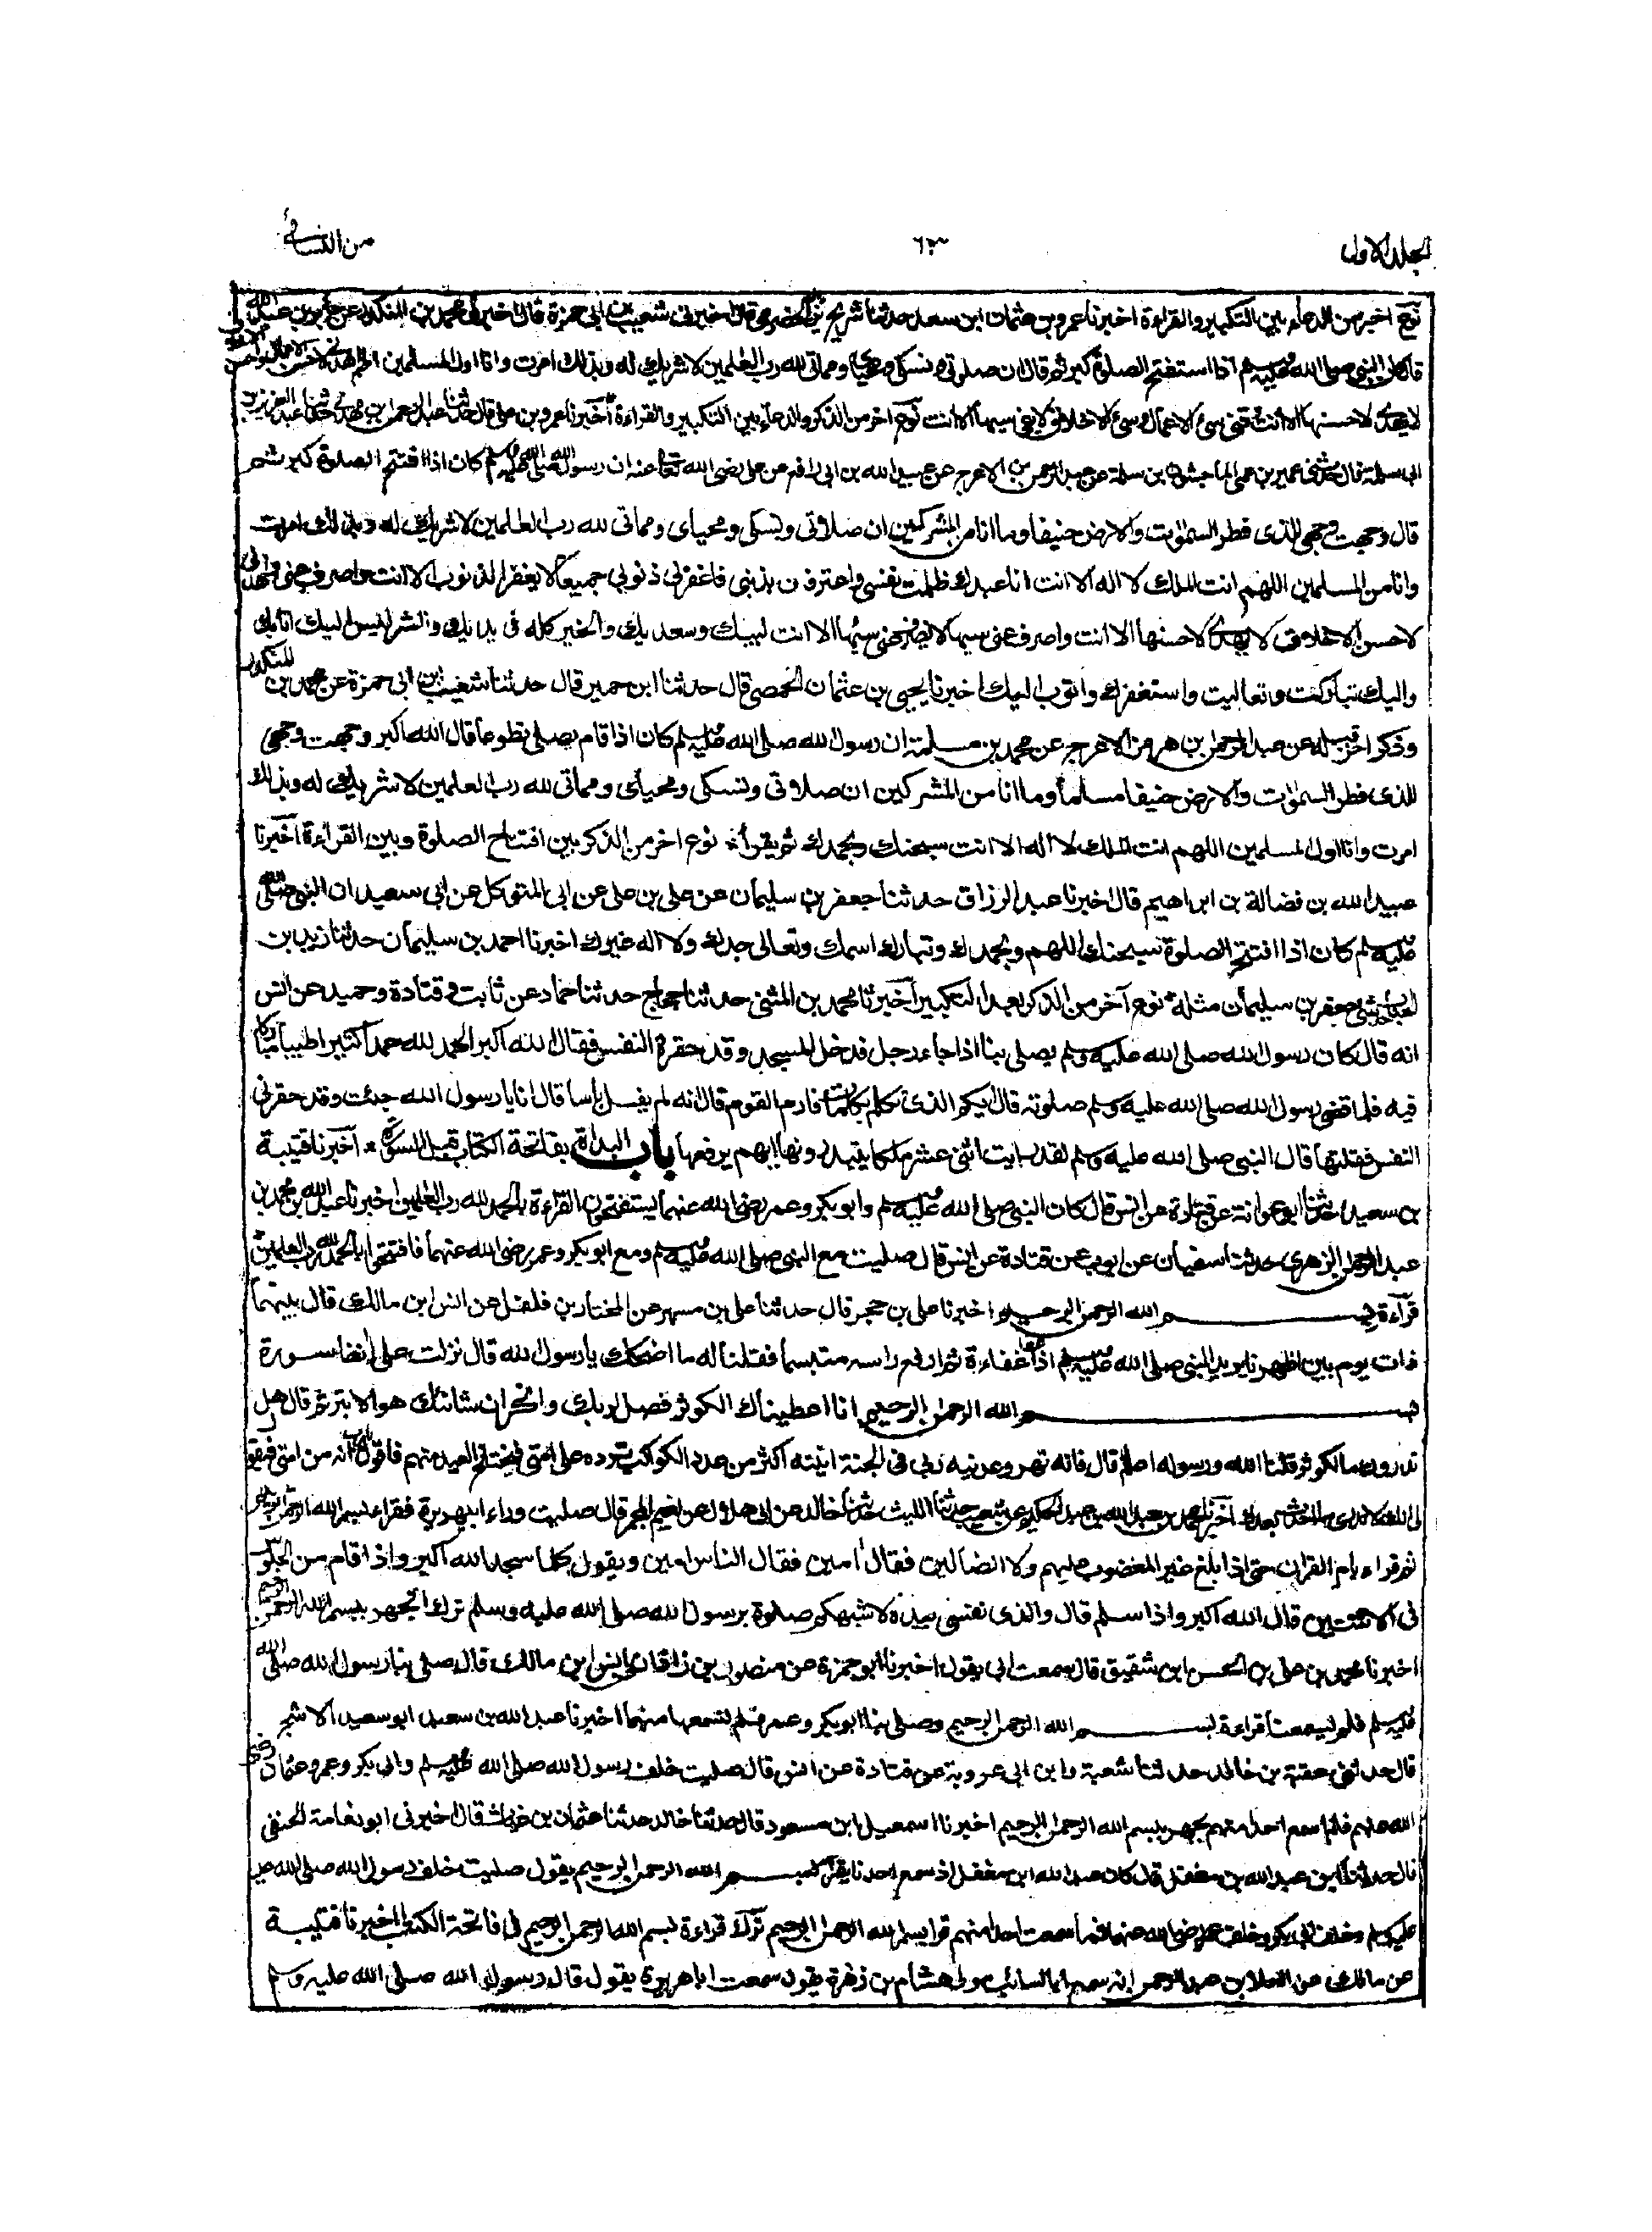 الجلد الاول
٦٢٣
من النسائی
نوع اخر من الدعاء بين التكبير والقراءة اخبرنا عمرو بن عثمان ابن سعد حدثنا شريح بن يزيد الحضرمى قال اخبرنى شعيب بن ابى حمزة قال اخبرنى محمد بن المنكدر عن جابر بن عبد الله
قال كان النبى صلى الله عليه وسلم اذا استفتح الصلوة كبر ثم قال ان صلوتى ونسكى ومحياى ومماتى لله رب العلمين لا شريك له وبذلك امرت وانا اول المسلمين اللهم اهدنى لاحسن الاعمال واحسن الاخلاق
لا يهدى لاحسنها الا انت وقنى سئ الاعمال وسئ الاخلاق لا يقى سيئها الا انت نوع اخر من الذكر والدعاء بين التكبير والقراءة اخبرنا عمرو بن على قال حدثنا عبد الرحمن بن مهدى حدثنا عبد العزيز بن
ابى سلمة قال حدثنى عمى الماجشون بن سلمة عن عبد الرحمن بن الاعرج عن عبيد الله بن ابى رافع عن على رضى الله تعا عنه ان رسول الله صلى الله عليه وسلم كان اذا افتتح الصلوة كبر ثم
قال وجهت وجهى للذى فطر السموت والارض حنيفا وما انا من المشركين ان صلاتى ونسكى ومحياى ومماتى لله رب العلمين لا شريك له وبذلك امرت
وانا من المسلمين اللهم انت الملك لا اله الا انت انا عبدك ظلمت نفسى واعترفت بذنبى فاغفرلى ذنوبى جميعا لا يغفر الذنوب الا انت واهدنى
لاحسن الاخلاق لا يهدى لاحسنها الا انت واصرف عنى سيئها لا يصرف عنى سيئها الا انت لبيك وسعديك والخير كله فى يديك والشر ليس اليك انا بك
واليك تباركت وتعاليت واستغفرك واتوب اليك اخبرنا يحيى بن عثمان الحمصى قال حدثنا ابن حمير قال حدثنا شعيب بن ابى حمزة عن محمد بن المنكدر
وذكر اخر قبله عن عبد الرحمن بن هرمز الاعرج عن محمد بن مسلمة ان رسول الله صلى الله عليه وسلم كان اذا قام يصلى تطوعا قال الله اكبر وجهت وجهى
للذى فطر السموات والارض حنيفا مسلما وما انا من المشركين ان صلاتى ونسكى ومحياى ومماتى لله رب العلمين لا شريك له وبذلك
امرت وانا اول المسلمين اللهم انت الملك لا اله الا انت سبحنك وبحمدك ثم يقرأ نوع اخر من الذكر بين افتتاح الصلوة وبين القراءة اخبرنا
عبيد الله بن فضالة بن ابراهيم قال اخبرنا عبد الرزاق حدثنا جعفر بن سليمان عن على بن على عن ابى المتوكل عن ابى سعيد ان النبى صلى الله
عليه وسلم كان اذا افتتح الصلوة سبحنك اللهم وبحمدك وتبارك اسمك وتعالى جدك ولا اله غيرك اخبرنا احمد بن سليمان حدثنا زيد بن
الحباب حدثنى جعفر بن سليمان مثله نوع آخر من الذكر بعد التكبير اخبرنا محمد بن المثنى حدثنا حجاج حدثنا حماد عن ثابت وقتادة وحميد عن انس
انه قال كان رسول الله صلى الله عليه وسلم يصلى بنا اذا جاء رجل فدخل المسجد وقد حفزه النفس فقال الله اكبر الحمد لله حمدا كثيرا طيبا مباركا
فيه فلما قضى رسول الله صلى الله عليه وسلم صلوته قال ايكم الذى تكلم بكلمات فارم القوم قال انه لم يقل بأسا قال انا يا رسول الله جئت وقد حفزنى
النفس فقلتها قال النبى صلى الله عليه وسلم لقد رايت اثنى عشر ملكا يبتدرونها ايهم يرفعها باب البداة بفاتحة الكتاب قبل السورة اخبرنا قتيبة
بن سعيد حدثنا ابو عوانة عن قتادة عن انس قال كان النبى صلى الله عليه وسلم وابو بكر وعمر رضى الله عنهما يستفتحون القراءة بالحمد لله رب العلمين اخبرنا عبد الله بن محمد بن
عبد الرحمن الزهرى حدثنا سفيان عن ايوب عن قتادة عن انس قال صليت مع النبى صلى الله عليه وسلم ومع ابو بكر وعمر رضى الله عنهما فافتتحوا بالحمد لله رب العلمين
قرآءة بسم الله الرحمن الرحيم اخبرنا على بن حجر قال حدثنا على بن مسهر عن المختار بن فلفل عن انس ابن مالك قال بينما
ذات يوم بين اظهرنا يريد النبى صلى الله عليه وسلم اذ اغفا اغفاءة ثم رفع راسه متبسما فقلنا له ما اضحكك يا رسول الله قال نزلت على انفا سورة
بسم الله الرحمن الرحيم انا اعطيناك الكوثر فصل لربك وانحر ان شانئك هو الابتر ثم قال هل
تدرون ما الكوثر قلنا الله ورسوله اعلم قال فانه نهر وعدنيه ربى فى الجنة انيته اكثر من عدد الكواكب ترده على امتى فيختلج العبد منهم فاقول يارب انه من امتى فيقول
لى انك لا تدرى ما احدث بعدك اخبرنا محمد بن عبد الله بن عبد الحكم عن شعيب حدثنا الليث حدثنا خالد عن ابى هلال عن نعيم المجمر قال صليت وراء ابى هريرة فقراء بسم الله الرحمن الرحيم
ثم قراء بام القران حتى اذا بلغ غير المغضوب عليهم ولا الضالين فقال امين فقال الناس امين ويقول كلما سجد الله اكبر واذا قام من الجلوس
فى الاثنتين قال الله اكبر واذا سلم قال والذى نفسى بيده لاشبهكم صلوة برسول الله صلى الله عليه وسلم ترك الجهر ببسم الله الرحمن الرحيم
اخبرنا محمد بن على بن الحسن ابن شقيق قال سمعت ابى يقول اخبرنا ابو حمزة عن منصور بن زاذان عن انس ابن مالك قال صلى بنا رسول الله صلى الله
عليه وسلم فلم يسمعنا قراءة بسم الله الرحمن الرحيم وصلى بنا ابو بكر وعمر فلم نسمعها منهما اخبرنا عبد الله بن سعيد ابو سعيد الاشج
قال حدثنى عقبة بن خالد حدثنا شعبة وابن ابى عروبة عن قتادة عن انس قال صليت خلف رسول الله صلى الله عليه وسلم وابى بكر وعمر وعثمان رضى
الله عنهم فلم اسمع احدا منهم يجهر ببسم الله الرحمن الرحيم اخبرنا اسمعيل ابن مسعود قال حدثنا خالد حدثنا عثمان بن غياث قال اخبرنى ابو نعامة الحنفى
قال حدثنا ابن عبد الله بن مغفل قال كان عبد الله ابن مغفل اذ سمع احدنا يقرأ بسم الله الرحمن الرحيم يقول صليت خلف رسول الله صلى الله
عليه وسلم وخلف ابى بكر وخلف عمر رضى الله عنهما فما سمعت احدا منهم قرا بسم الله الرحمن الرحيم ترك قراءة بسم الله الرحمن الرحيم فى فاتحة الكتاب اخبرنا قتيبة
عن مالك عن العلا بن عبد الرحمن انه سمع ابا السائب مولى هشام بن زهرة يقول سمعت ابا هريرة يقول قال رسول الله صلى الله عليه وسلم